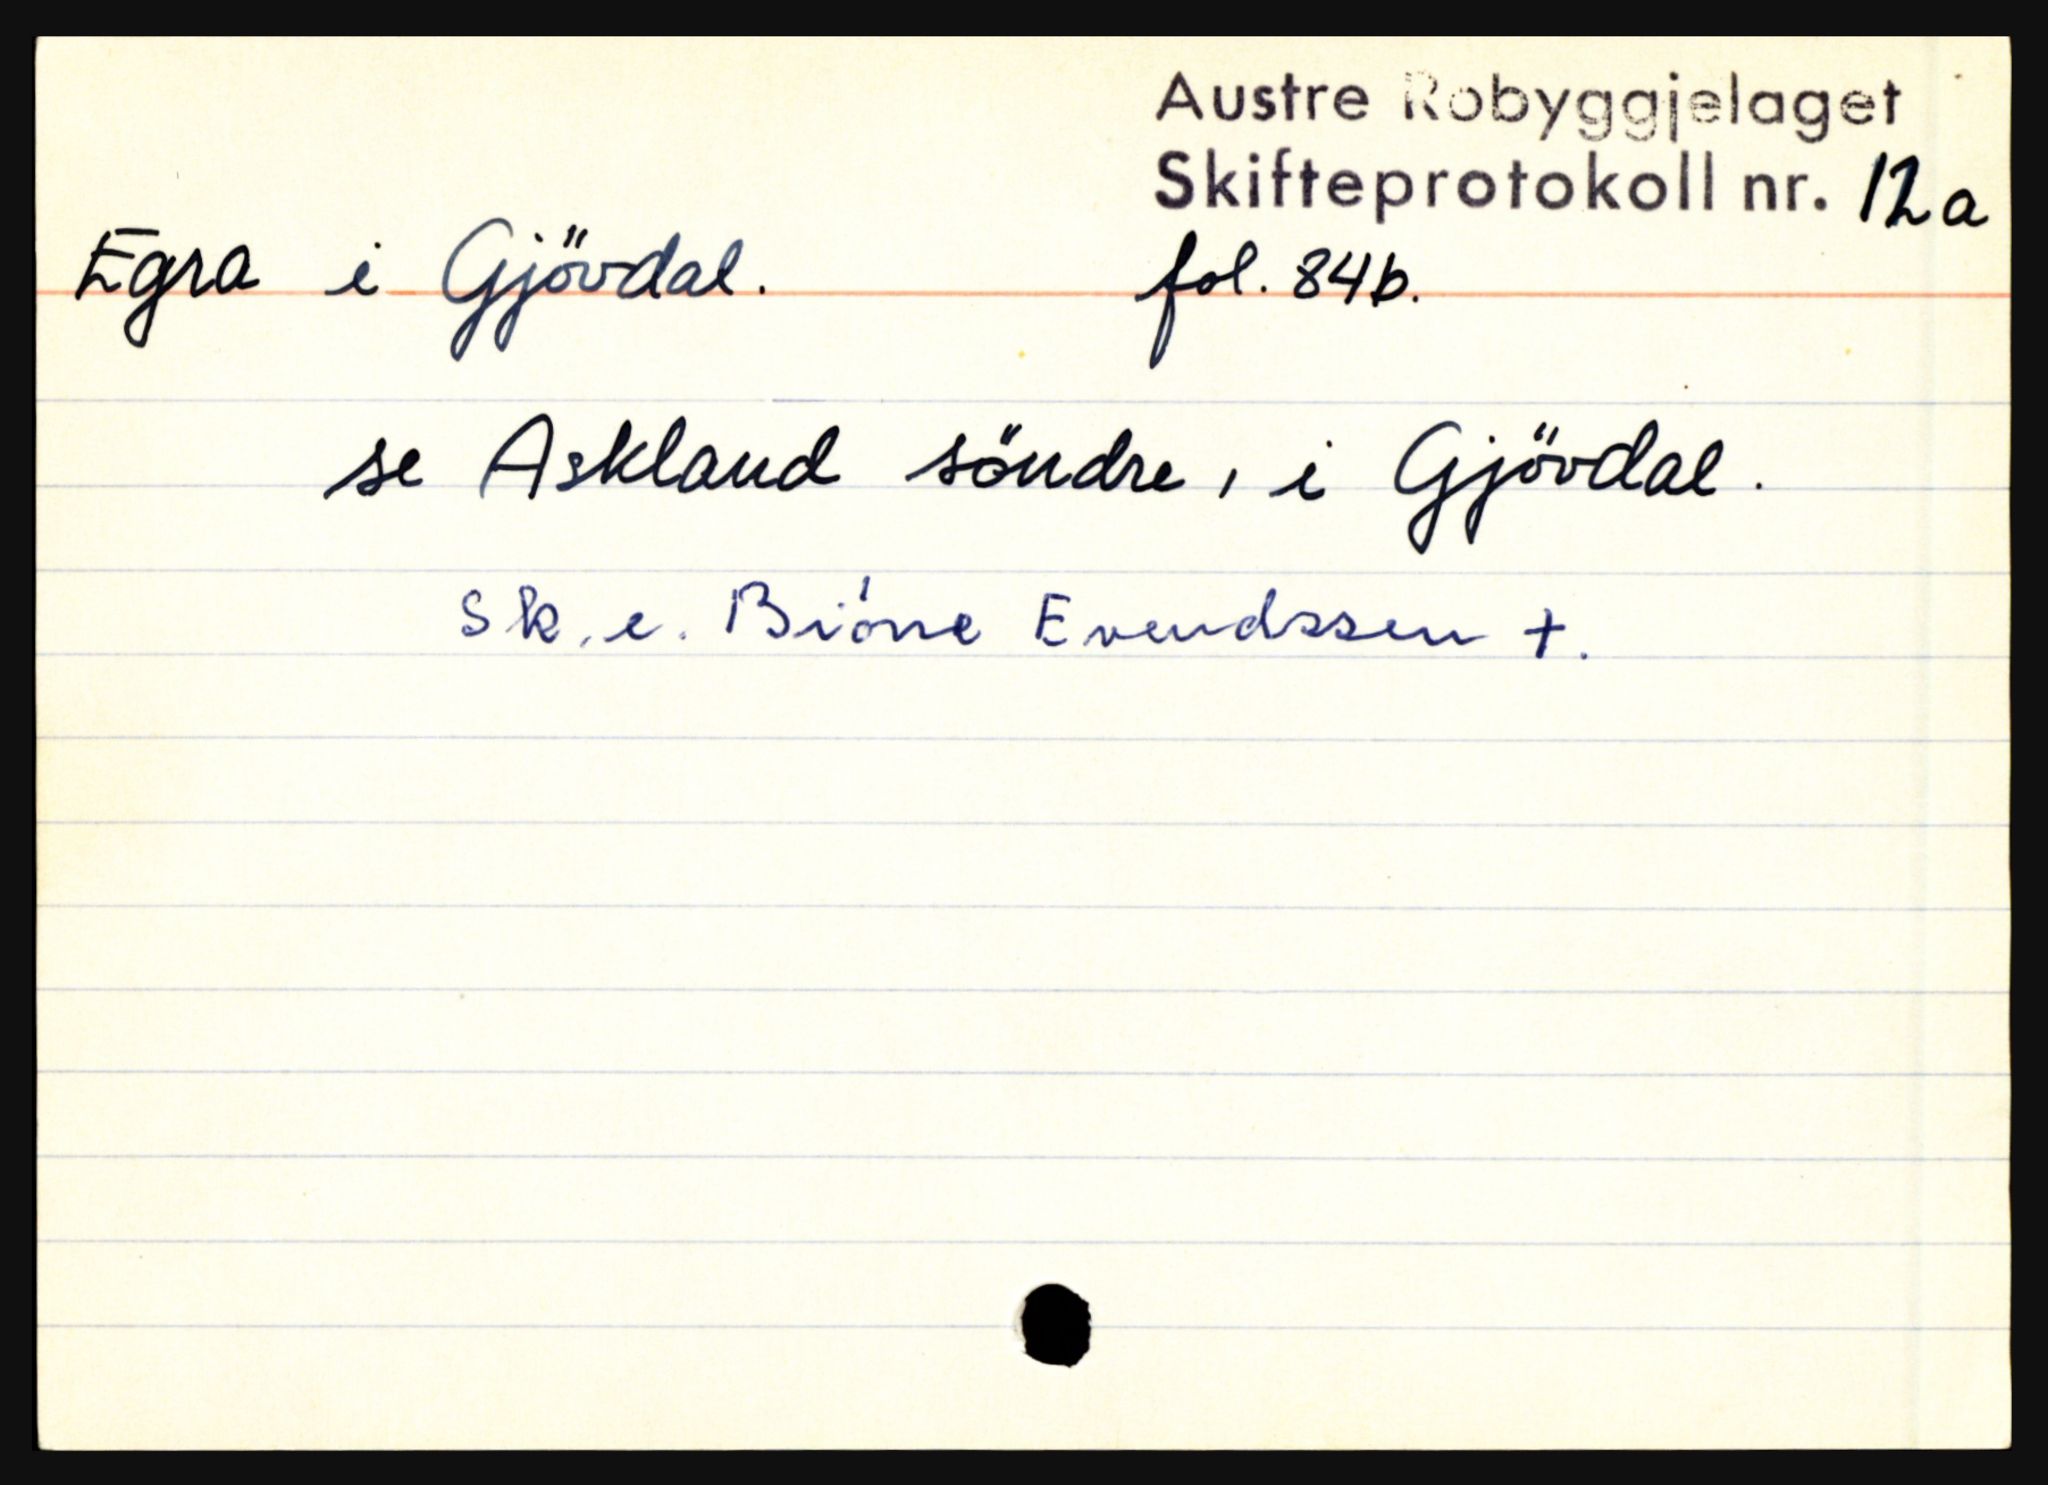 Austre Robyggjelaget
Skifteprotokoll nr. 12a
Egra i Gjövdal. fol. 84b.
se Askland söndre, i Gjövdal.
Sk. e. Biöne Evendssen +.